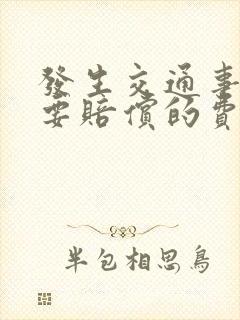 發生交通事
要賠償的費
半包相思鳥